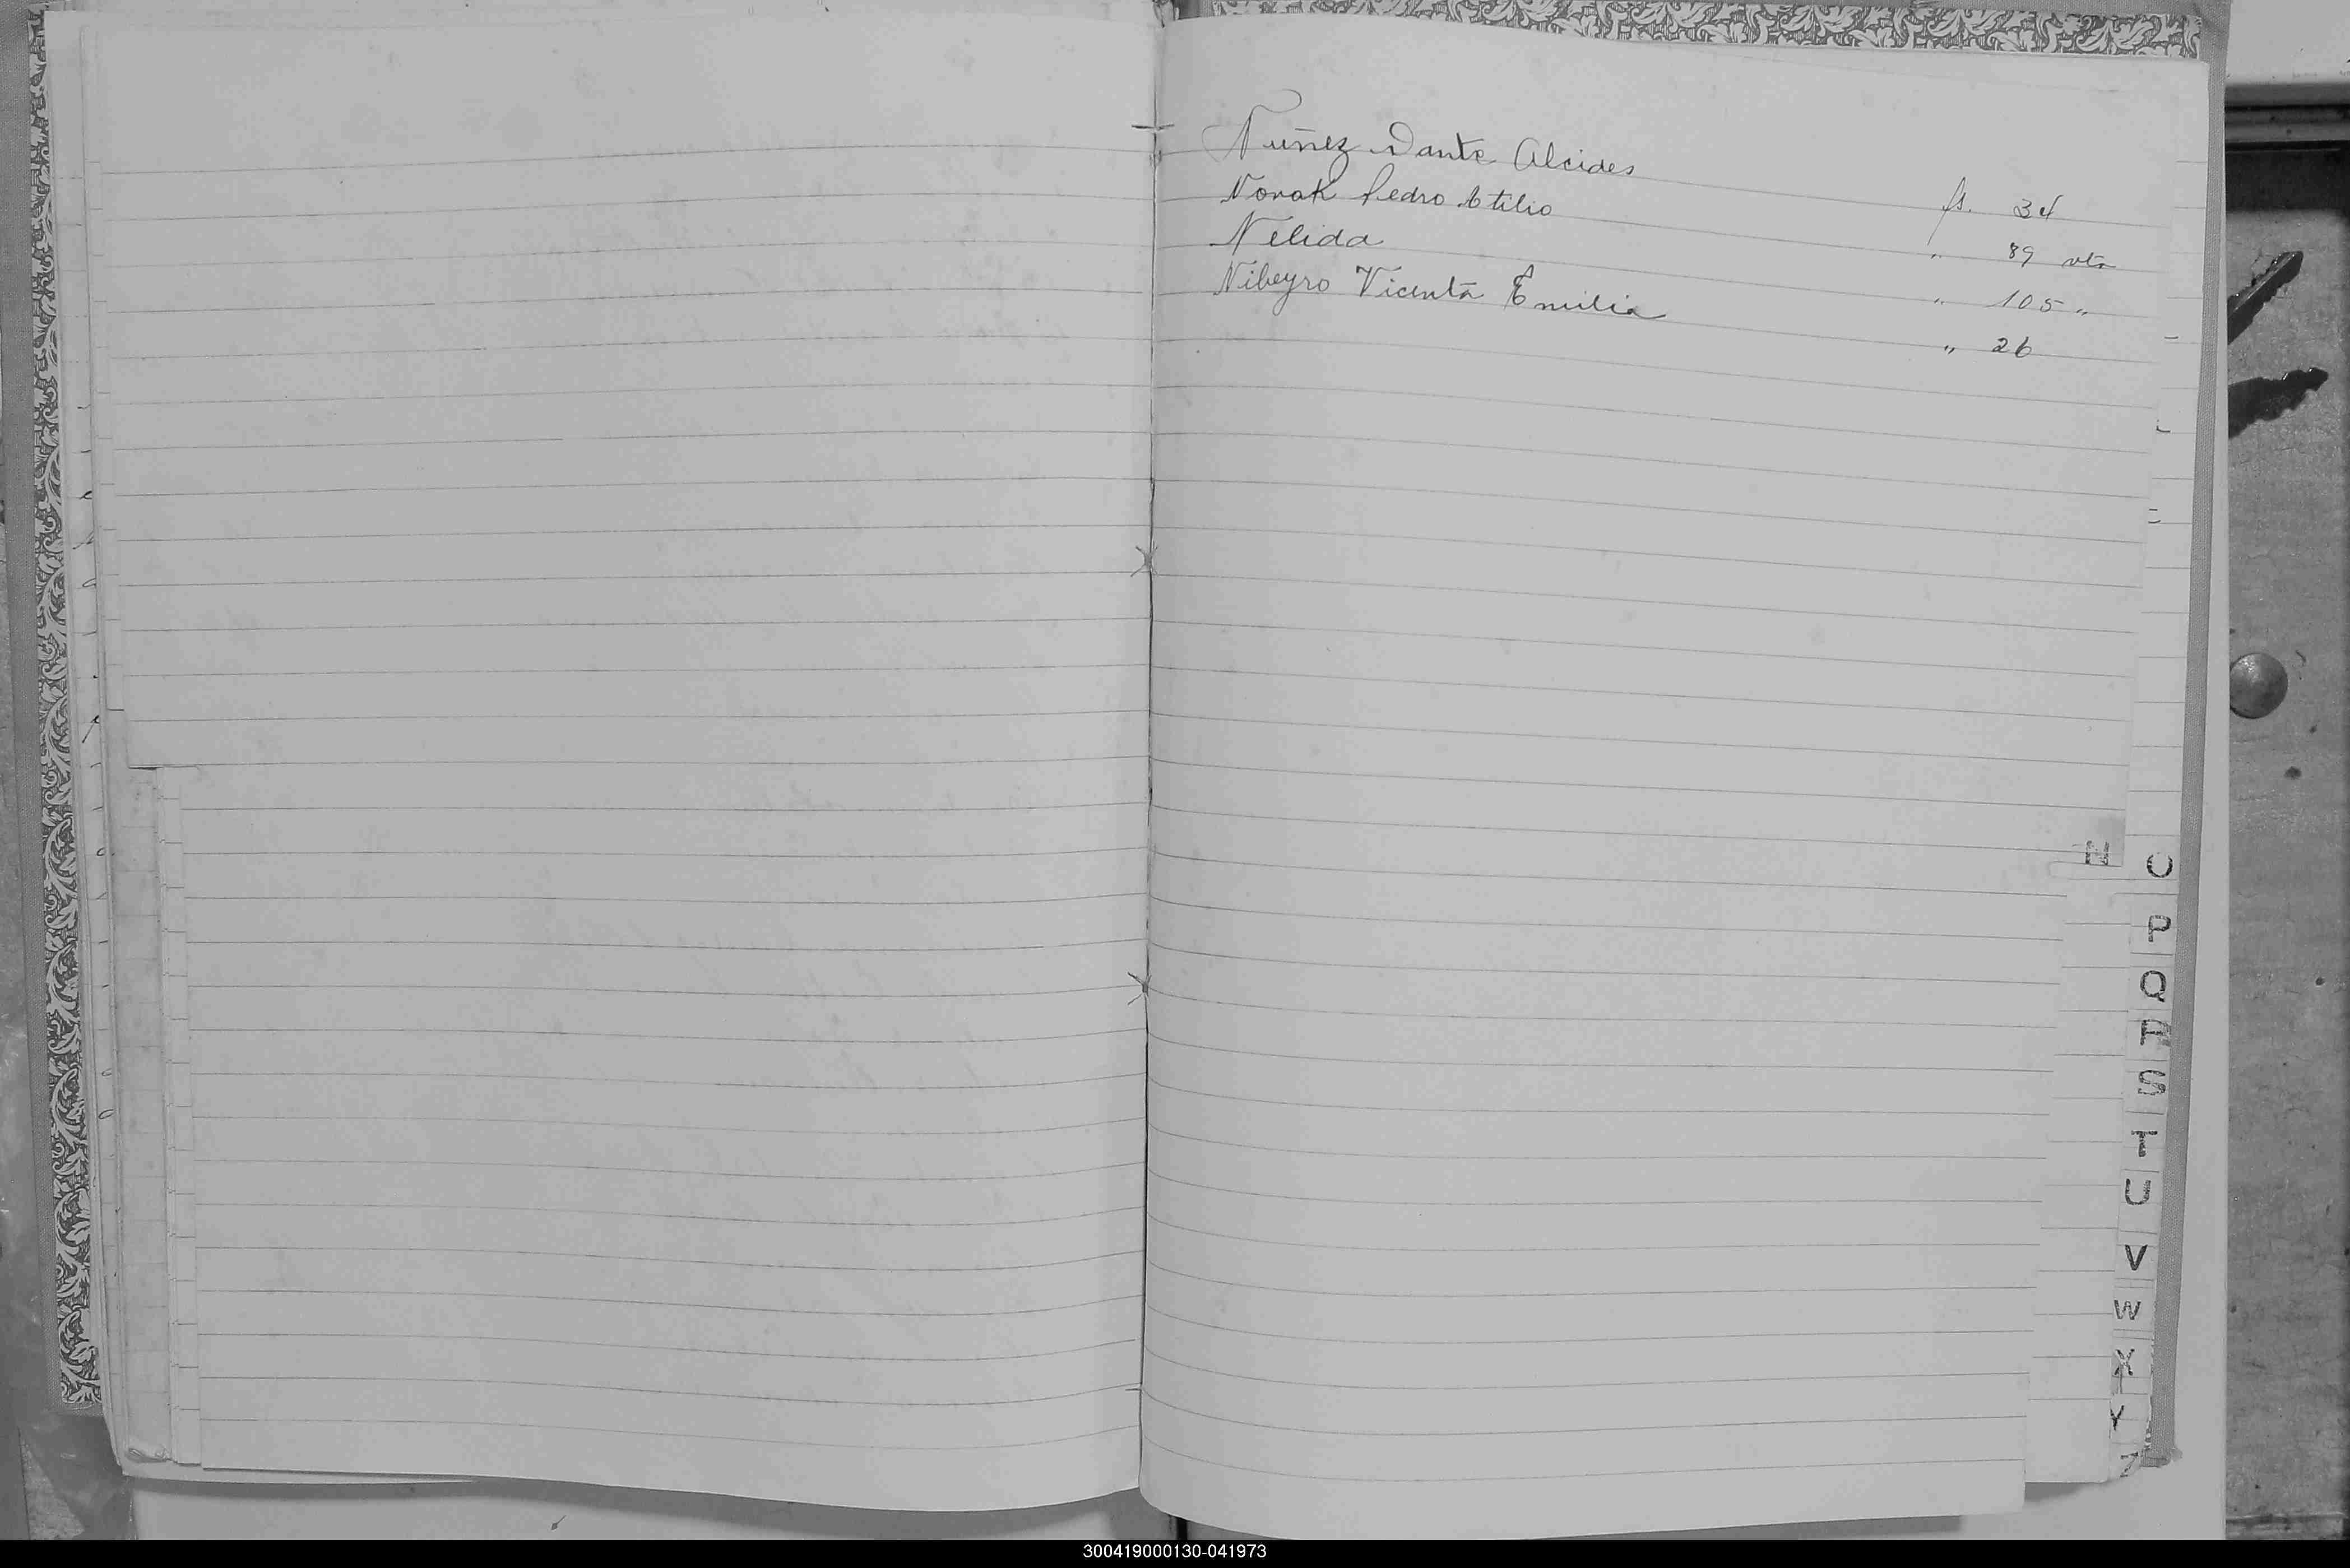 Nuñez Dante Alcides fs. 34
Novak Pedro Atilio " 89 vta
Nélida " 105 "
Nibeyro Vicenta Emilia " 26
N
O
P
Q
R
S
T
U
V
W
X
Y
Z
300419000130-041973